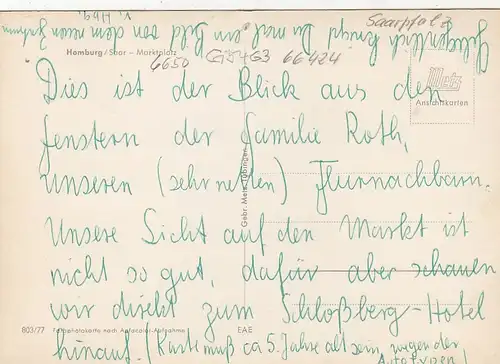 Saarpfalz
Gelegentlich kriegst Du mal ein Bild von dem man
Homburg/Saar - Marktplatz
6650
66424
Metz
Ansichtskarten
Dies ist der Blick aus den
Fenstern der Familie Roth,
unseren (sehr netten) Flurnachbarn.
Unsere Sicht auf den Markt ist
nicht so gut, dafür aber schauen
wir direkt zum Schloßberg-Hotel
hinauf. (Karte muß ca 5 Jahre alt sein wegen der
Autotypen!)
Gebr. Metz, Tübingen
803/77 Farbphotokarte nach Agfacolor-Aufnahme
EAE